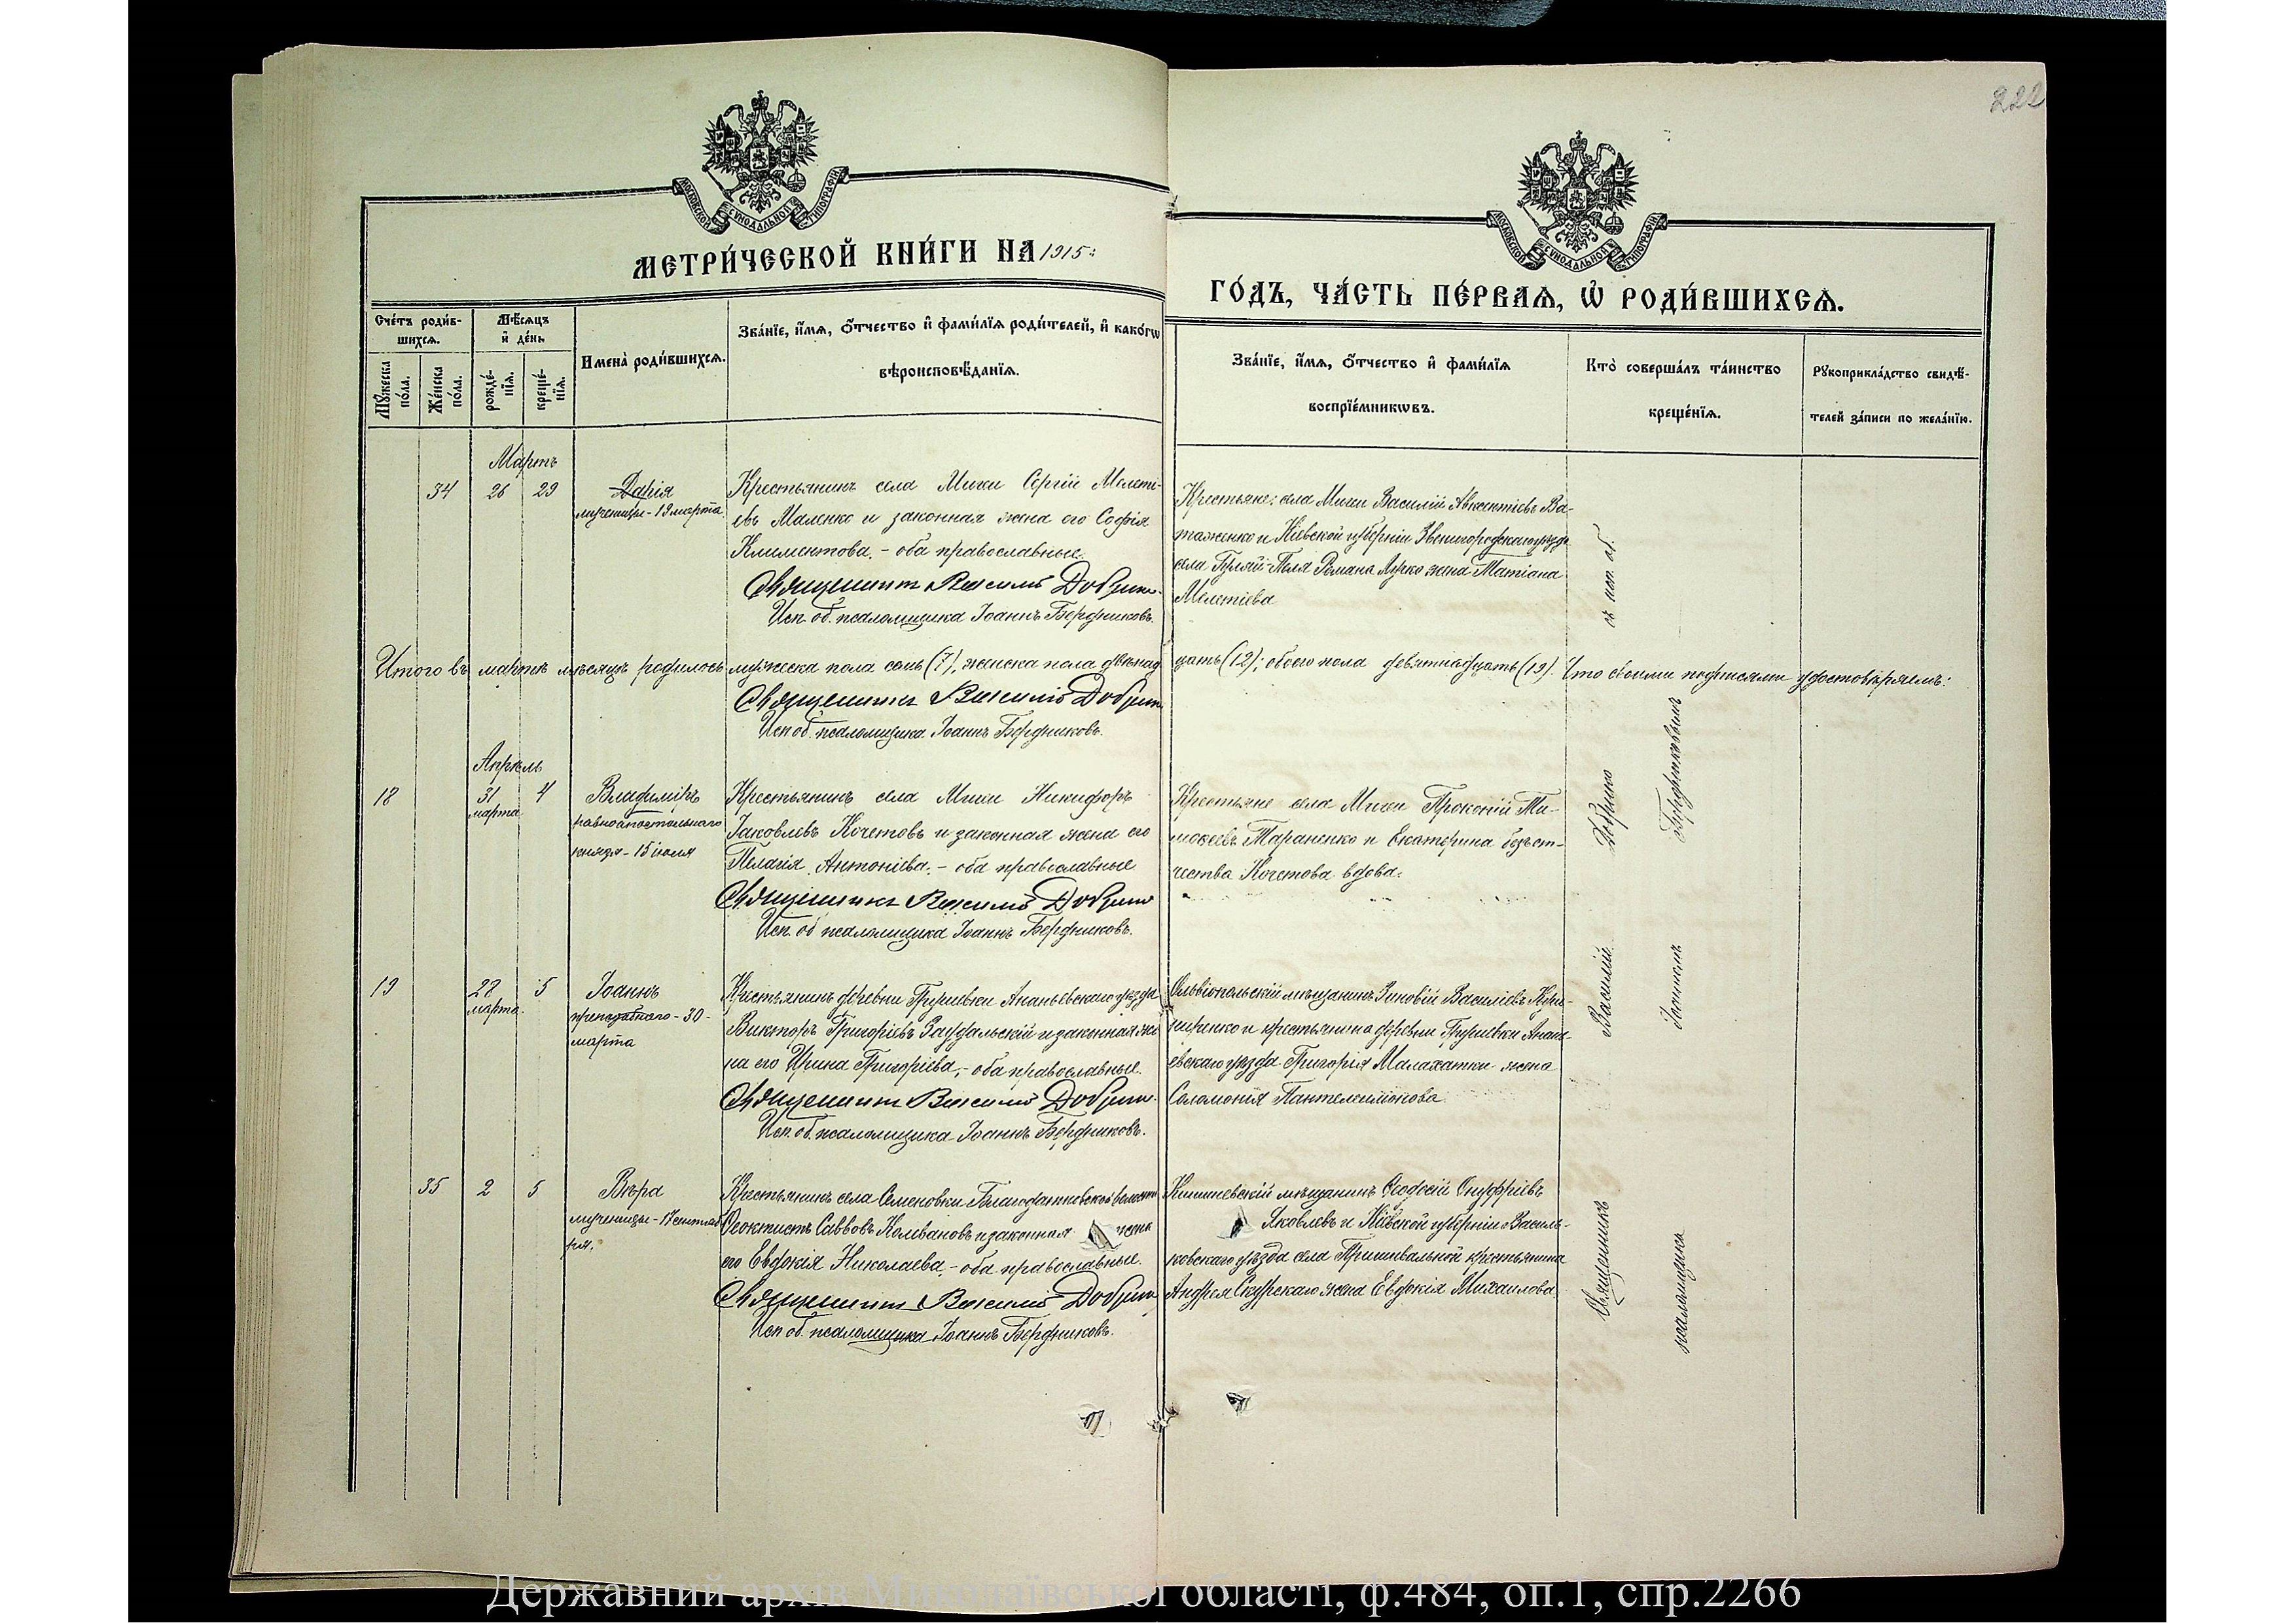 222
МОСКОВСКОЙ СѴНОДАЛЬНОЙ ТИПОГРАФІИ
МОСКОВСКОЙ СѴНОДАЛЬНОЙ ТИПОГРАФІИ
МЕТРИ́ЧЕСКОЙ КНИ́ГИ НА 1915:
ГО́ДЪ, ЧА́СТЬ ПЕ́РВАѦ, Ѽ РОДИ́ВШИХСѦ.
Сче́тъ роди́в-
шихсѧ.
Мꙋ́жеска по́ла.
Же́нска по́ла.
Мѣ́сѧцъ
и҆ де́нь
рожде́-
нїѧ.
креще́-
нїѧ.
Имена̀ роди́вшихсѧ.
Зва́нїе, и҆́мѧ, ѻ҆́тчество и҆ фами́лїѧ роди́телей, и҆ како́гѡ
вѣроисповѣ́данїѧ.
Зва́нїе, и҆́мѧ, ѻ҆́тчество и҆ фами́лїѧ
воспрїе́мникѡвъ.
Кто̀ соверша́лъ та́инство
креще́нїѧ.
Рꙋкоприкла́дство свидѣ́-
телей за́писи по жела́нїю.
Мартъ
34 26 29
Дарія
мученицы - 19 марта
Крестьянинъ села Мигеи Сергій Мелеті-
евъ Маленко и законная жена его Софія
Климентова, - оба православные.
Священникъ Василій Добрико.
Исп. об. псаломщика Іоаннъ Бердниковъ.
Крестьяне: села Мигеи Василій Авксентіевъ Ва-
таженко и Кіевской губерніи Звенигородскаго уѣзда
села Гуляй-Поля Романа Лурко жена Татіана
Мелетіева
Итого въ мартѣ мѣсяцѣ родилось мужеска пола семь (7), женска пола двѣнад
цать (12); обоего пола девятнадцать (19). Что своими подписями удостовѣряемъ:
Священникъ Василій Добрико
Исп. об. псаломщика Іоаннъ Бердниковъ.
Апрѣль
18 31 4
марта
Владиміръ
равноапостольнаго
князя - 15 іюля
Крестьянинъ села Мигеи Никифоръ
Іаковлевъ Кочетовъ и законная жена его
Пелагія Антоніева, - оба православные
Священникъ Василій Добрико
Исп. об. псаломщика Іоаннъ Бердниковъ.
Крестьяне села Мигеи Прокопій Ти-
моѳеевъ Тараненко и Екатерина безъот-
чества Кочетова вдова.
19 28 5
марта
Іоаннъ
преподобнаго - 30 -
марта
Крестьянинъ деревни Грушевки Ананьевскаго уѣзда
Викторъ Григоріевъ и законная же
на его Ирина Григоріева, - оба православные.
Священникъ Василій Добрико.
Исп. об. псаломщика Іоаннъ Бердниковъ.
Ольвіопольскій мѣщанинъ Зиновій Василіевъ
и крестьянина деревни Грушевки Анань-
евскаго уѣзда Григорія Малахатки жена
Соломонія Пантелеимонова
35 2 5
Вѣра
мученицы - 17 сентяб
ря.
Крестьянинъ села Семеновки Благодатновской волости
Ѳеоктистъ Саввовъ Коливановъ и законная жена
его Евдокія Николаева, - оба православные.
Священникъ Василій Добрико
Исп. об. псаломщика Іоаннъ Бердниковъ.
Кишиневскій мѣщанинъ Ѳеодосій Онуфріевъ
Яковлевъ и Кіевской губерніи Василь-
ковскаго уѣзда села Пришивальной крестьянина
Андрея Скурскаго жена Евдокія Михаилова.
Священникъ Василій Добрико съ исп. об.
псаломщика Іоанномъ Бердниковымъ
Державний архів Миколаївської області, ф.484, оп.1, спр.2266